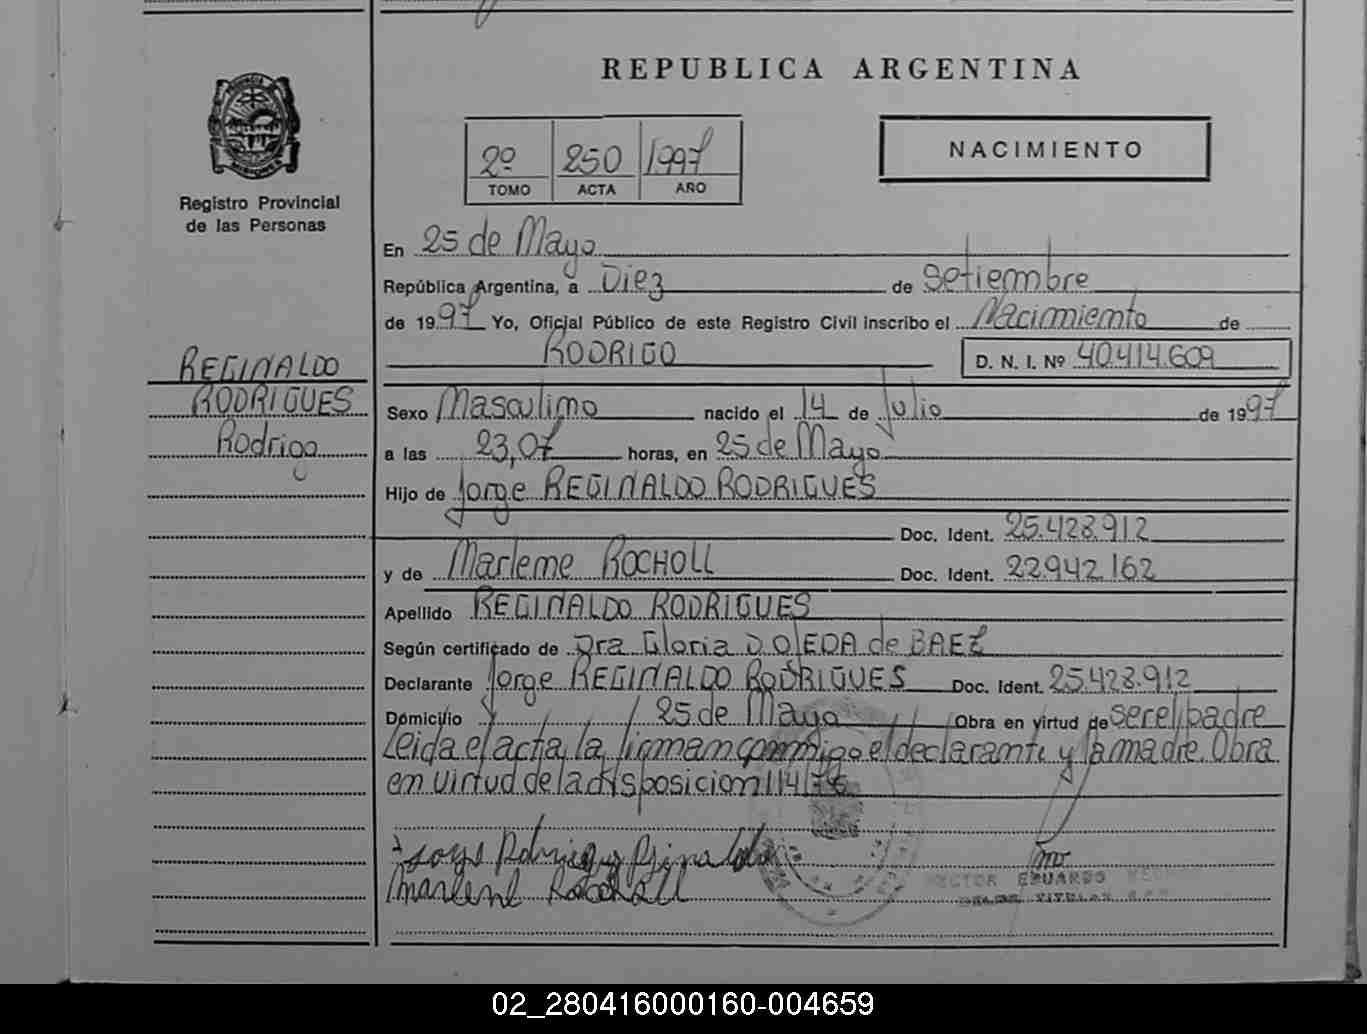 REPUBLICA ARGENTINA
NACIMIENTO
2º 250 1997
TOMO ACTA AÑO
Registro Provincial
de las Personas
En 25 de Mayo
República Argentina, a Diez de Setiembre
de 1997 Yo, Oficial Público de este Registro Civil inscribo el Nacimiento de
RODRIGO D. N. I. Nº 40.414.609
REGINALDO
RODRIGUES
Rodrigo
Sexo Masculino nacido el 14 de Julio de 1997
a las 23,07 horas, en 25 de Mayo
Hijo de Jorge REGINALDO RODRIGUES
Doc. Ident. 25.423.912
y de Marlene ROCHOLL Doc. Ident. 22.942.162
Apellido REGINALDO RODRIGUES
Según certificado de Dra Gloria D. OJEDA de BAEZ
Declarante Jorge REGINALDO RODRIGUES Doc. Ident. 25.423.912
Domicilio 25 de Mayo Obra en virtud de ser el padre
Leida el acta, la firman conmigo el declarante y la madre. Obra
en virtud de la disposicion 114/76
Marlene Rocholl
HECTOR EDUARDO
02_280416000160-004659